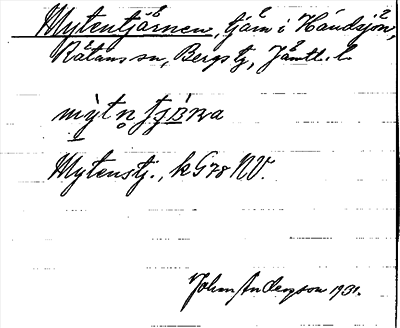 Mytentjärnen, tjärn i Handsjön,
Rätans sn, Bergs tg, Jämtl. l.
Mytenstj., k G78 NV.
Johan Andersson 1931.